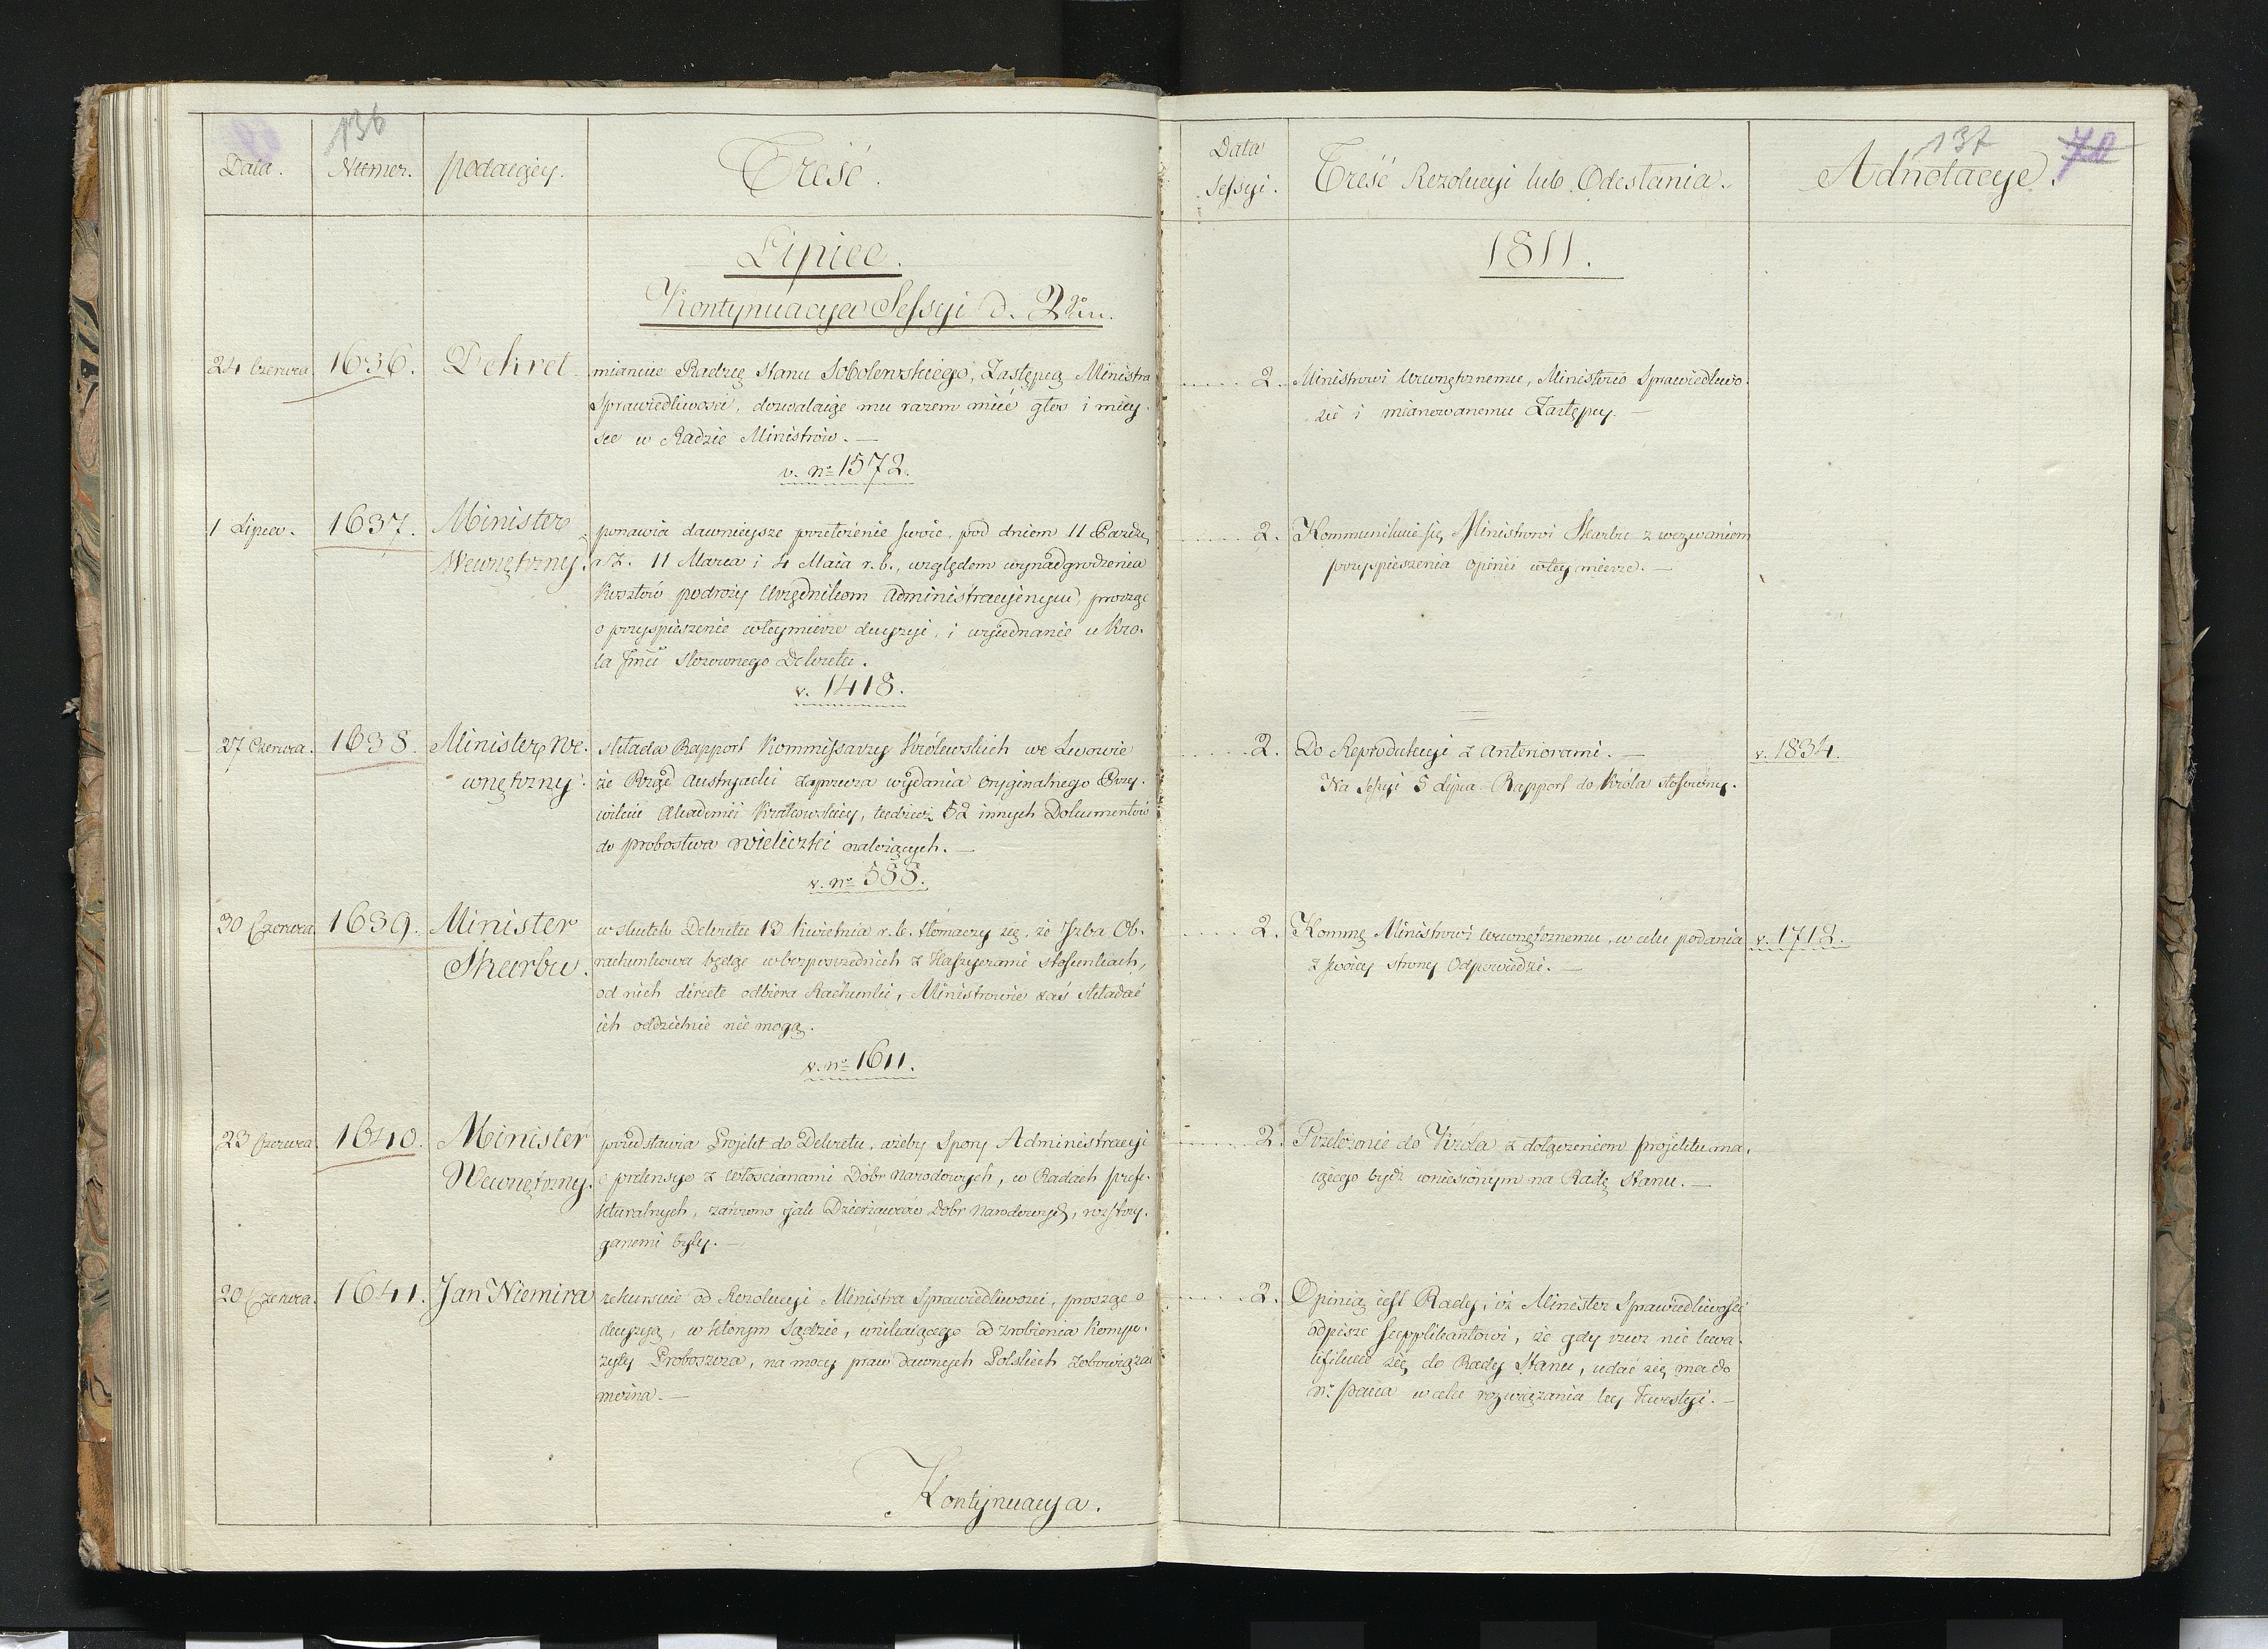 136
Data.
Numer.
podaiący.
Treść.
Lipiec.
Kontynuacya Sessyi d. 2go Lu.
24 Czerwca
1636.
Dekret
mianuie Radzcę Stanu Sobolewskiego, Zastępcą Ministra
Sprawiedliwości, dozwalaiąc mu razem mieć głos i miey-
sce w Radzie Ministrów. —
v. nº 1572.
1 Lipca.
1637.
Minister
Wewnętrzny.
ponawia dawnieysze przełożenie swoie, pod dniem 11 Paźdz.
r. z. 11 Marca i 4 Maia r. b., względem wynadgrodzenia
Kosztów podróży Urzędnikom Administracyinym, prosząc
o przyspieszenie w tey mierze decyzyi, i wyiednanie u Kró-
la Jmci stosownego Dekretu.
v. 1418.
27 Czerwca.
1638.
Minister We-
wnętrzny.
składa Rapport Kommissarzy Królewskich we Lwowie
że Rząd Austryacki zaprzecza wydania Oryginalnego Przy-
wileiu Akademii Krakowskiey, tudzież 52 innych Dokumentów
do probostwa Wieliczki należących. —
v. nº 588.
30 Czerwca
1639.
Minister
Skarbu.
w skutek Dekretu 13 Kwietnia r. b. tłómaczy się, że Izba Ob-
rachunkowa będąc w bezpośrednich z Kassyerami stosunkach,
od nich directe odbiera Rachunki, Ministrowie zaś składać
ich oddzielnie nie mogą.
v. nº 1611.
23 Czerwca
1640.
Minister
Wewnętrzny.
przedstawia Projekt do Dekretu, ażeby Spory Administracyi
i pretensye z Włościanami Dóbr Narodowych, w Radach Prefe-
kturalnych, zarówno iak Dzierżawców Dóbr Narodowych, rozstrzy-
ganemi były. —
20 Czerwca.
1641.
Jan Niemira
rekursuie od Rezolucyi Ministra Sprawiedliwości, prosząc o
decyzyą, w którym Sądzie, unikaiącego od zrobienia Kompo-
zyty Proboszcza, na mocy praw dawnych Polskich zobowiązać
można. —
Kontynuacya.
Data
Sessyi.
Treść Rezolucyi lub Odesłania.
137
70
Adnotacye.
1811.
2.
Ministrowi Wewnętrznemu, Ministrowi Sprawiedliwo-
ści i mianowanemu Zastępcy. —
2.
Kommunikuie się Ministrowi Skarbu z wezwaniem
przyspieszenia opinii w tey mierze. —
2.
Do Reprodukcyi z anteriorami. —
Na Sessyi 5 Lipca Rapport do Króla stosowny.
v. 1834.
2.
Kommę Ministrowi Wewnętrznemu, w celu podania
z swoiey strony Odpowiedzi. —
v. 1712.
2.
Przełożenie do Króla z dołączeniem projektu ma-
iącego bydź wniesionym na Radę Stanu. —
2.
Opinią iest Rady, iż Minister Sprawiedliwości
odpisze Supplikantowi, że gdy rzecz nie kwa-
lifikuie się do Rady Stanu, udać się ma do
w celu rozwiązania tey kwestyi. —